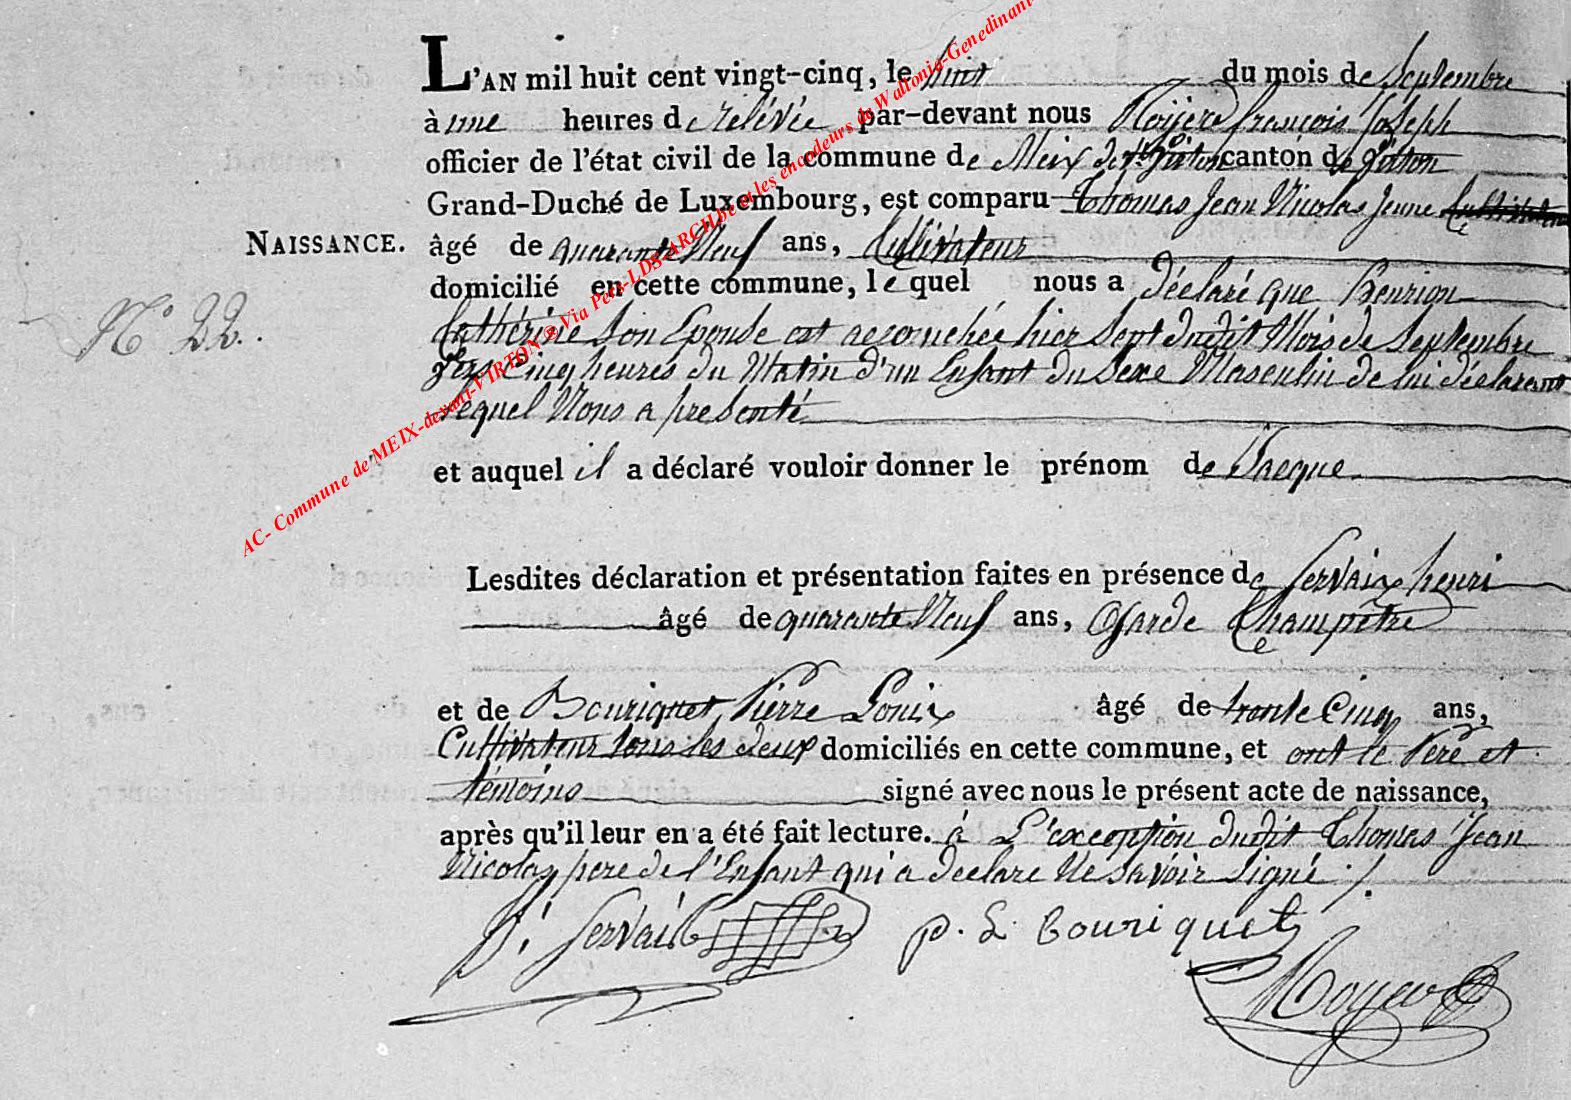 L'AN mil huit cent vingt-cinq, le huit du mois de Septembre
à une heures de rélévée par-devant nous Roÿer françois Joseph
officier de l'état civil de la commune de Meix dt Virton canton de Virton
Grand-Duché de Luxembourg, est comparu Thomas Jean Nicolas Jeune Cultivateur
NAISSANCE. âgé de quarante Neuf ans, Cultivateur
domicilié en cette commune, lequel nous a déclaré que Henrion
N° 22.
Cathérine Son Epouse est accouchée hier Sept dudit Mois de Septembre
vers Cinq heures du Matin d'un Enfant du Sexe Masculin de lui déclarant
lequel Nous a présenté
et auquel il a déclaré vouloir donner le prénom de Jacque
Lesdites déclaration et présentation faites en présence de Servaix henri
âgé de quarante Neuf ans, Garde Champêtre
et de Bouriquet Pierre Louix âgé de trente Cinq ans,
Cultivateur tous les deux domiciliés en cette commune, et ont le Père et
témoins signé avec nous le présent acte de naissance,
après qu'il leur en a été fait lecture. à L'exception dudit Thomas Jean
Nicolas pere de l'Enfant qui a declaré Ne Savoir Signé ./.
h. Servais
p. L bouriquet
Royer
AC- Commune de MEIX-devant-VIRTON ® Via Pers-LDS-ARCH.be et les encodeurs de Wallonia-Genedinant